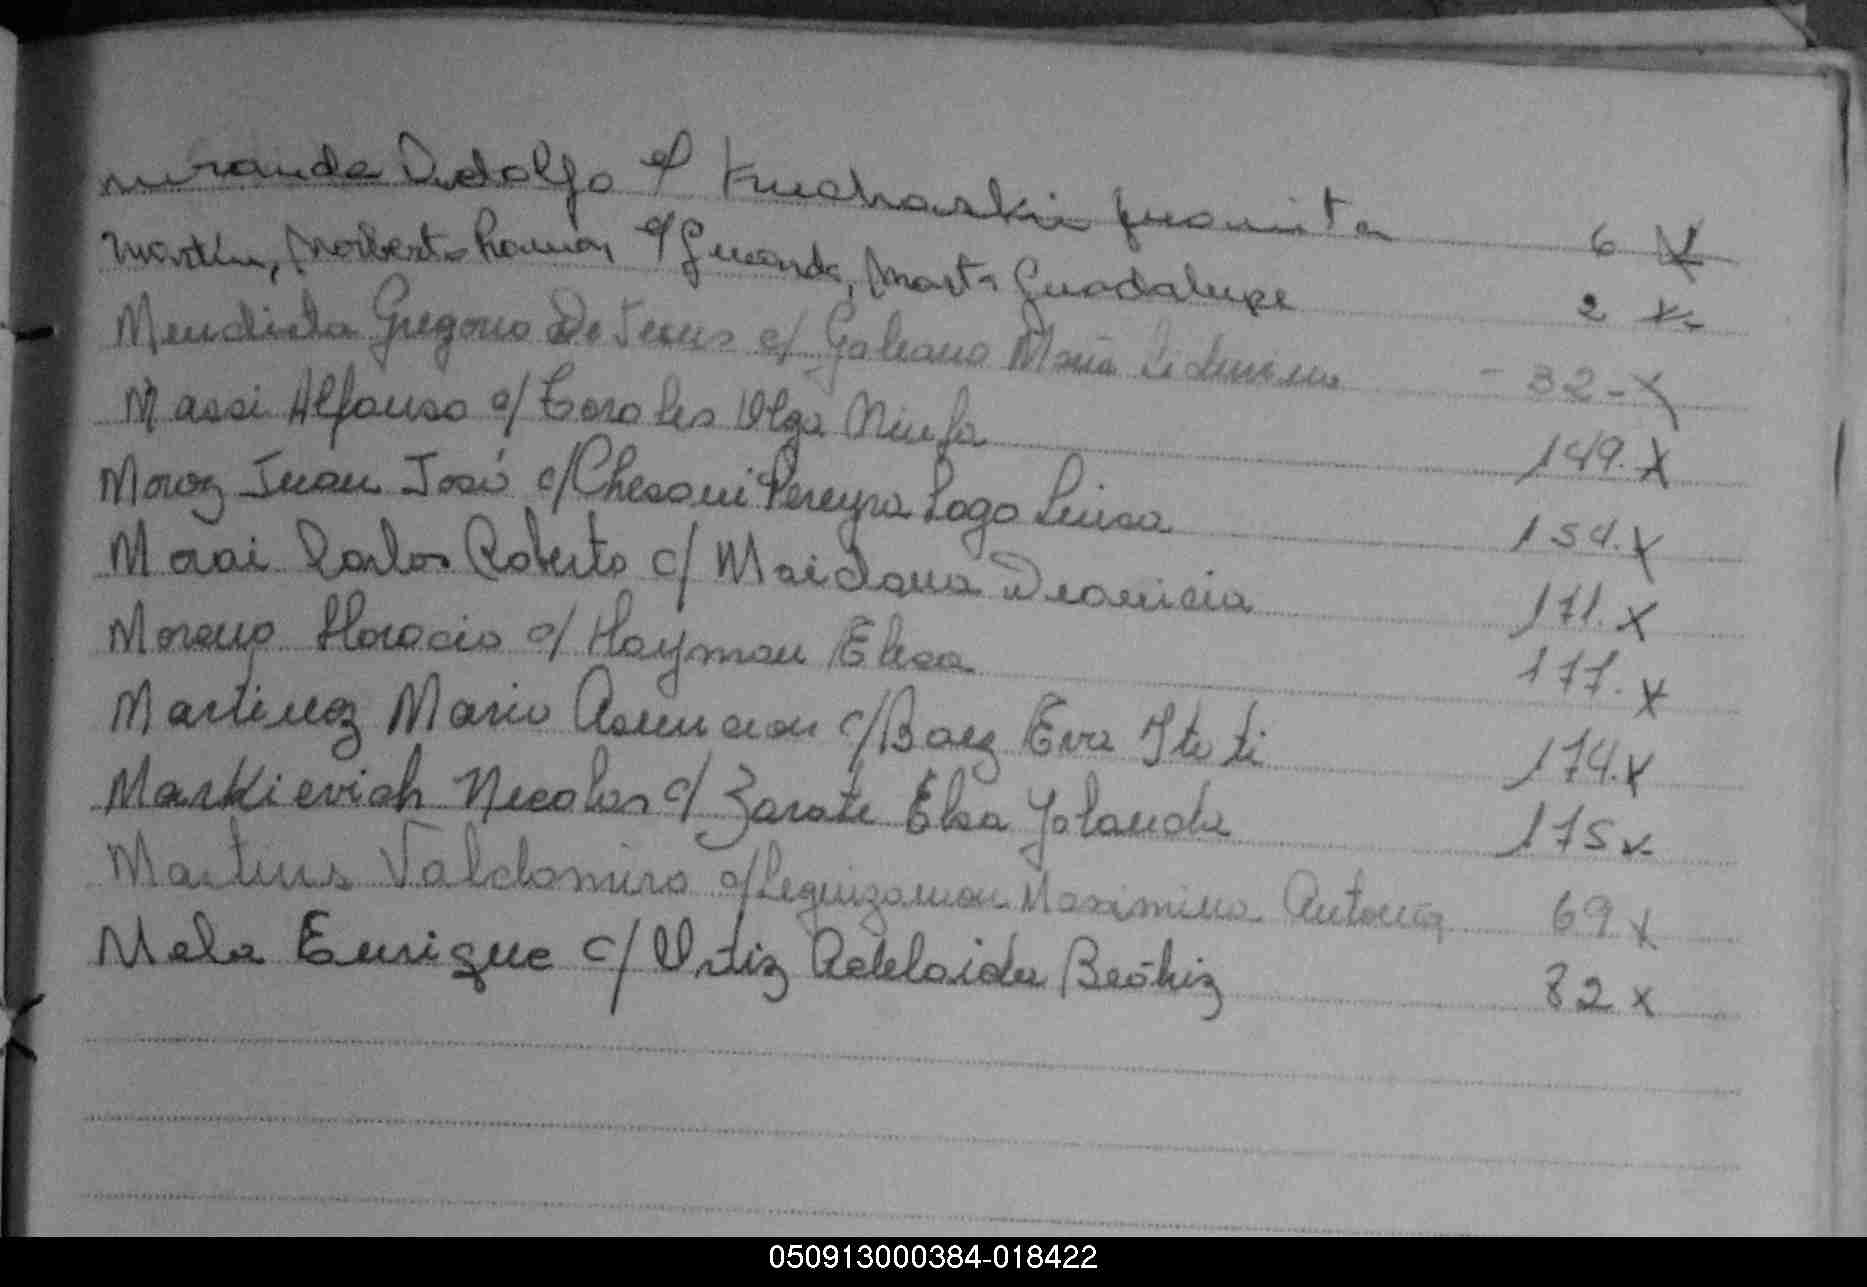 Miranda Rodolfo c/ Kucharski Juanita 6 X
Martín, Norberto Ramon c/ Miranda, Marta Guadalupe 2 X
Mendieta Gregorio De Jesus c/ Galeano María - 32 - X
Massi Alfonso c/ Corales Olga Ninfa 149. X
Moroz Juan José c/ Chesani Pereyra Lago Luisa 154. X
Carlos Roberto c/ Maidana Dionicia 171. X
Moreno Horacio c/ Hayman Elsa 177. X
Martinez Mario Asuncion c/ Baez Eva Itati 174. X
Markievich Nicolas c/ Zarate Elsa Yolanda 175 X
Martins Valdomiro c/ Leguizamon Maximina Antonia 69 X
Mela Enrique c/ Ortiz Adelaida Beatriz 82 X
050913000384-018422